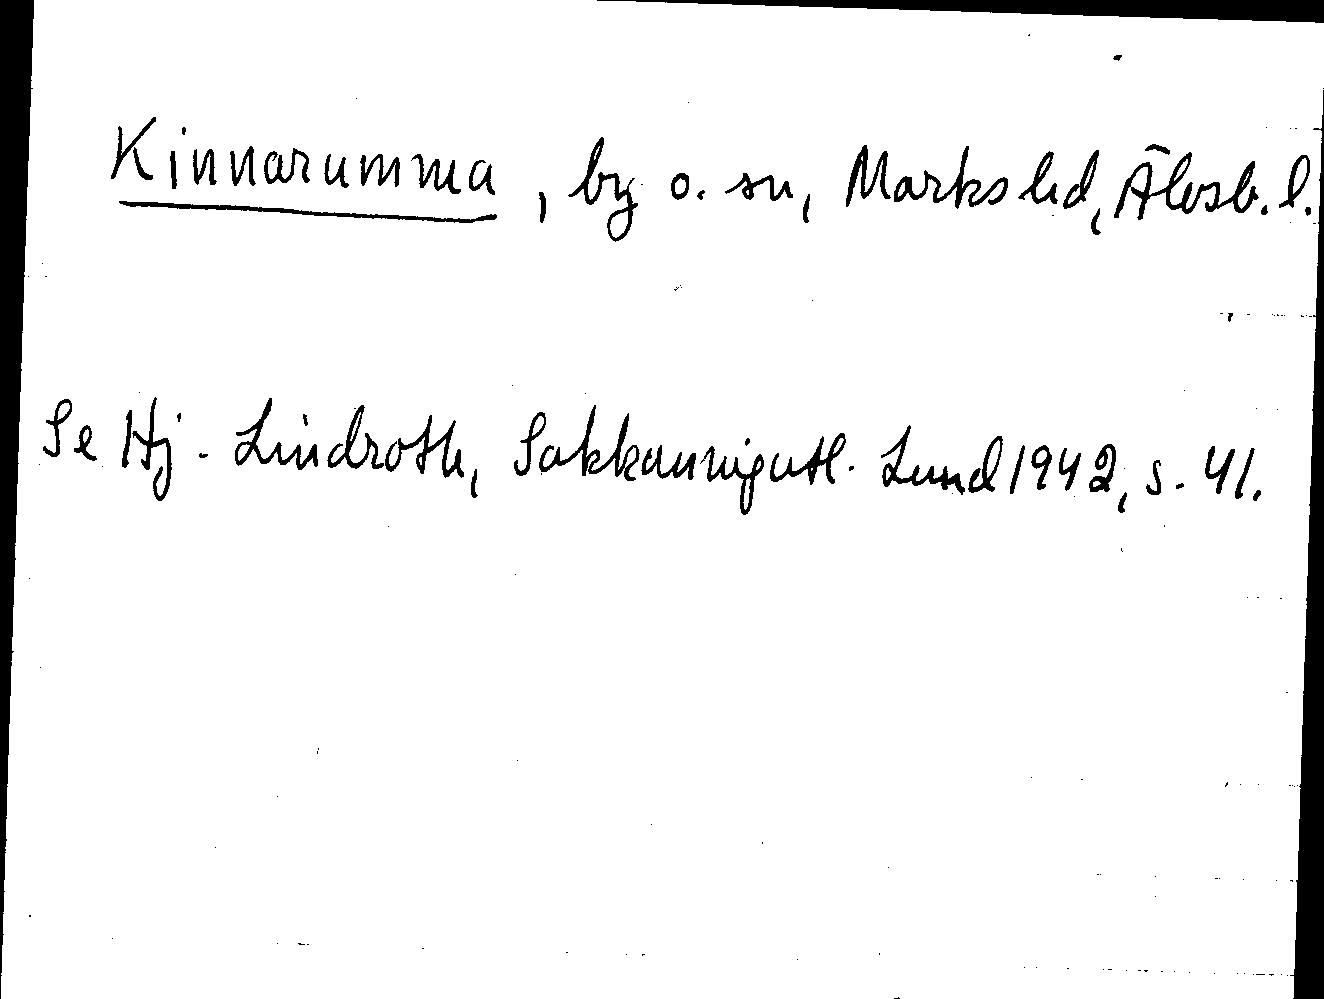 Kinnarumma, by o. sn, Marks hd, Älvsb. l.
Se Hj. Lindroth, Lund 1942, s. 41.